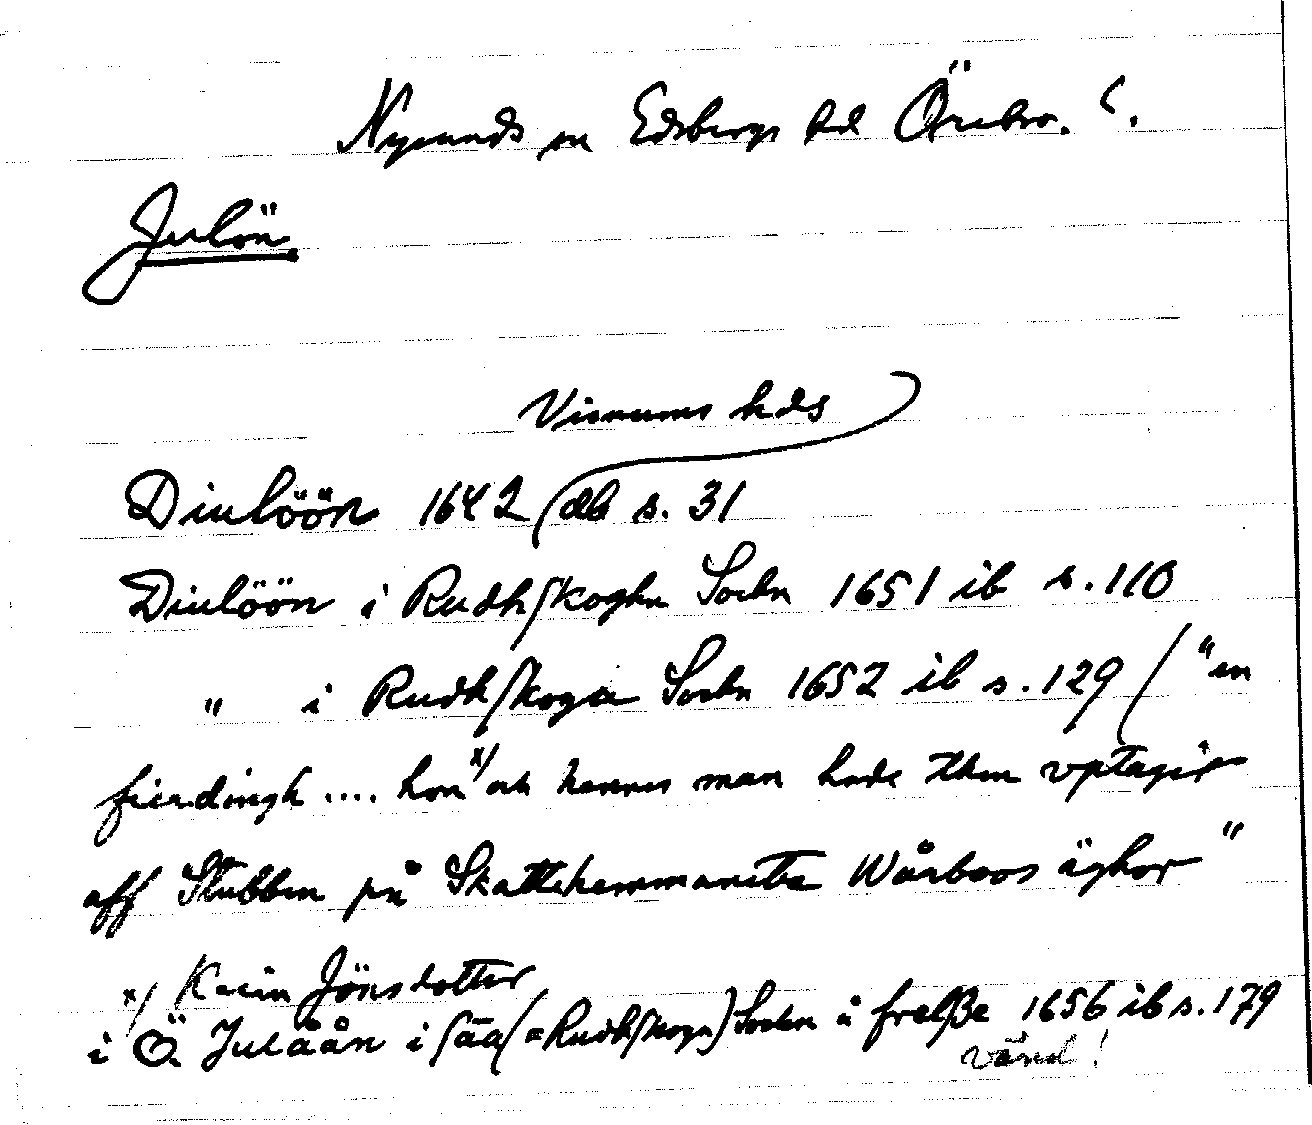 Nysunds sn Edsbergs hd Örebro. l.
Julön
Visnums hds
Diulöön 1642 (db s. 31
Diulöön i Rudhskoghn Sockn 1651 ib s. 110
" i Rudhskoga Sockn 1652 ib s. 129 / "en
fierdingh .... hon x/ och hennes man hade them vptagit
aff Stubben på Skattehemmanetz Wårboos äghor"
x/ Karin Jönsdotter
i Ö Julåån i sāā (= Rudhskoga) Sockn å frelße 1656 ib s. 179
vänd!